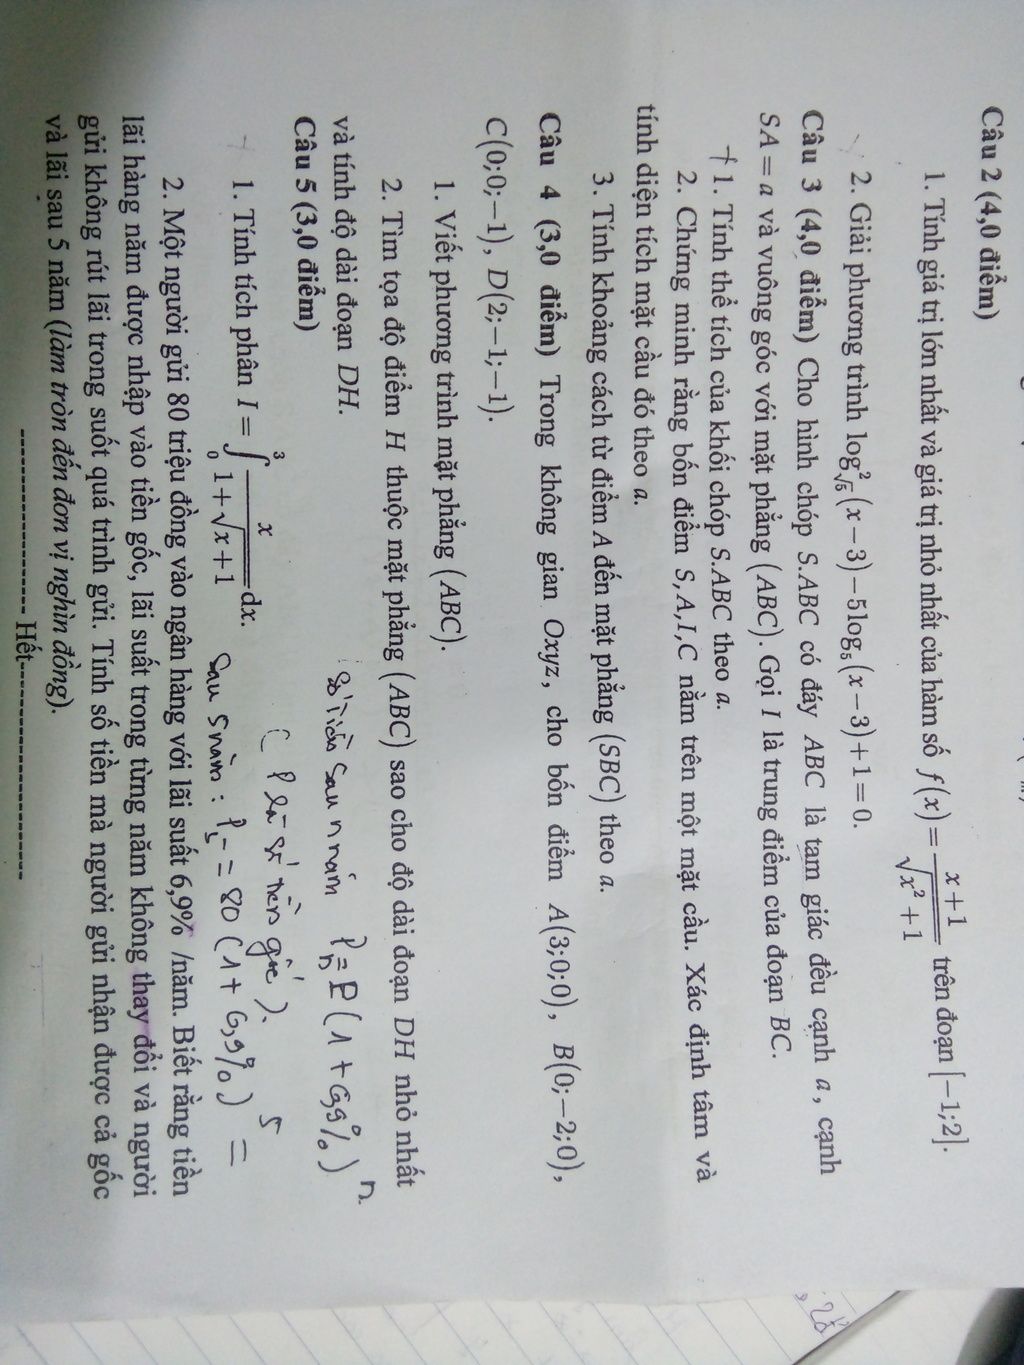 Câu 2 (4,0 điểm)
1. Tính giá trị lớn nhất và giá trị nhỏ nhất của hàm số f(x) = (x+1)/√(x²+1) trên đoạn [−1;2].
2. Giải phương trình log²_√5 (x−3) − 5log₅ (x−3) + 1 = 0.
Câu 3 (4,0 điểm) Cho hình chóp S.ABC có đáy ABC là tam giác đều cạnh a, cạnh
SA = a và vuông góc với mặt phẳng (ABC). Gọi I là trung điểm của đoạn BC.
1. Tính thể tích của khối chóp S.ABC theo a.
2. Chứng minh rằng bốn điểm S, A, I, C nằm trên một mặt cầu. Xác định tâm và
tính diện tích mặt cầu đó theo a.
3. Tính khoảng cách từ điểm A đến mặt phẳng (SBC) theo a.
Câu 4 (3,0 điểm) Trong không gian Oxyz, cho bốn điểm A(3;0;0), B(0;−2;0),
C(0;0;−1), D(2;−1;−1).
1. Viết phương trình mặt phẳng (ABC).
2. Tìm tọa độ điểm H thuộc mặt phẳng (ABC) sao cho độ dài đoạn DH nhỏ nhất
và tính độ dài đoạn DH.
Số tiền sau n năm Pₙ = P(1 + 6,9%)ⁿ
Câu 5 (3,0 điểm)
( P là số tiền gốc ).
1. Tính tích phân I = ∫₀³ x/(1+√(x+1)) dx.
Sau 5 năm : P₅ = 80(1 + 6,9%)⁵ =
2. Một người gửi 80 triệu đồng vào ngân hàng với lãi suất 6,9% /năm. Biết rằng tiền
lãi hàng năm được nhập vào tiền gốc, lãi suất trong từng năm không thay đổi và người
gửi không rút lãi trong suốt quá trình gửi. Tính số tiền mà người gửi nhận được cả gốc
và lãi sau 5 năm (làm tròn đến đơn vị nghìn đồng).
-------------------- Hết--------------------